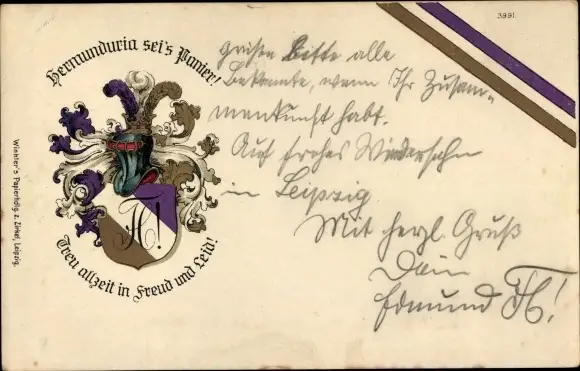 3991
Hermunduria sei's Panier!
Treu allzeit in Freud und Leid!
Winkler's Papierhdlg. z. Zirkel, Leipzig.
grüßen Bitte alle
Bekannte, wenn Ihr Zusam-
menkunft habt.
Auf frohes Wiedersehn
in Leipzig
Mit herzl. Gruß
Dein
Edmund